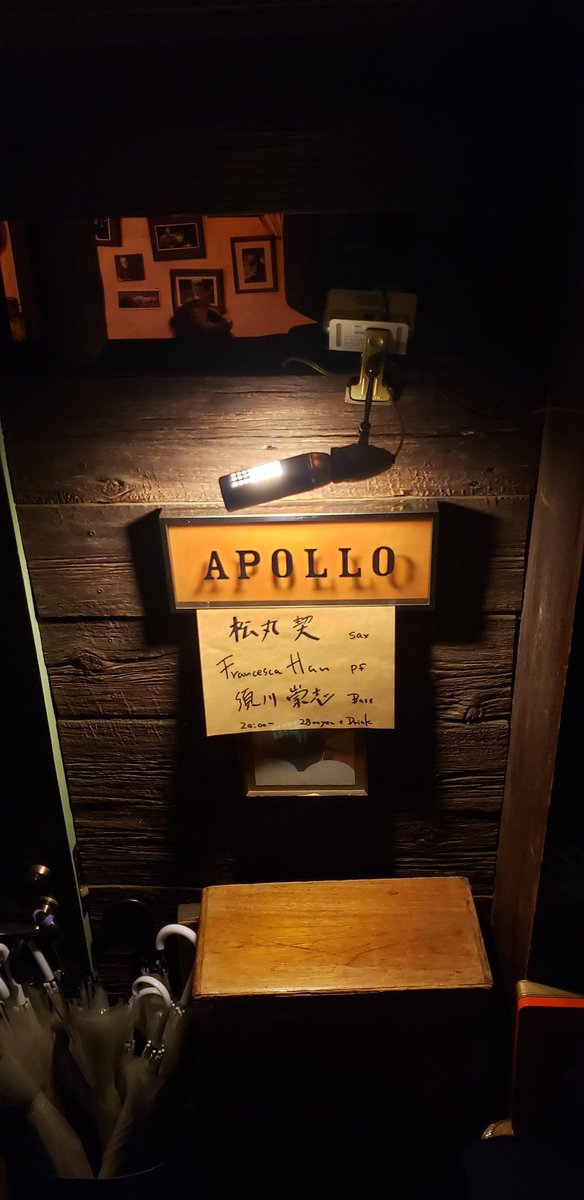 APOLLO
松丸 契 sax
Francesca Han pf
須川 崇志 Bass
20:00~ 2800yen + Drink